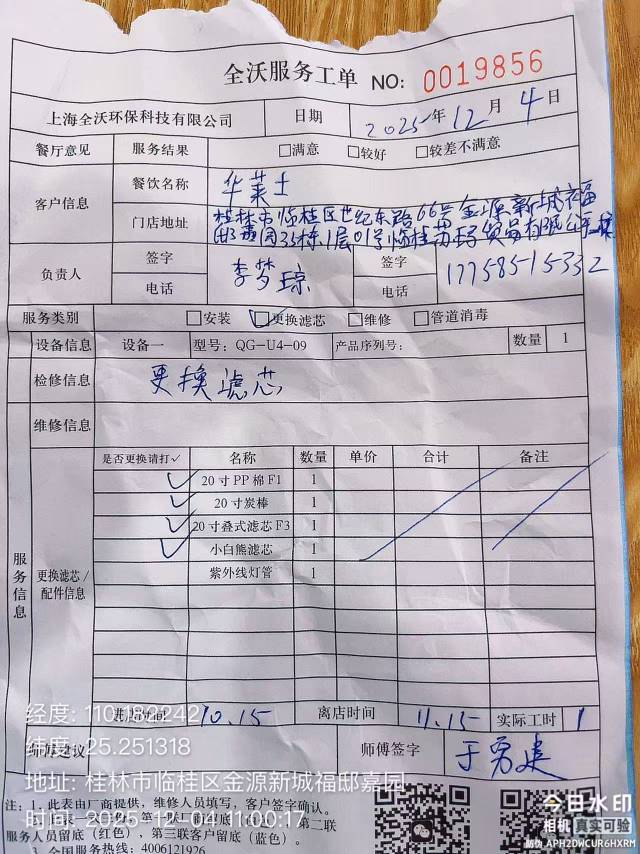 全沃服务工单 NO: 0019856
上海全沃环保科技有限公司 日期 2025年12月4日
餐厅意见 服务结果 □满意 □较好 □较差不满意
客户信息 餐饮名称 华莱士
门店地址 桂林市临桂区世纪东路66号金源新城福
邸嘉园35栋1层01号临桂
负责人 签字 李梦琼 签字
电话 电话 17758515332
服务类别 □安装 ☑更换滤芯 □维修 □管道消毒
设备信息 设备一 型号: QG-U4-09 产品序列号: 数量 1
检修信息 更换滤芯
维修信息
服务信息 更换滤芯/配件信息 是否更换请打✓ 名称 数量 单价 合计 备注
✓ 20寸PP棉F1 1
✓ 20寸炭棒 1
✓ 20寸叠式滤芯F3 1
✓ 小白熊滤芯 1
紫外线灯管 1
进店时间 10.15 离店时间 11.15 实际工时 1
师傅建议 师傅签字 于勇建
注: 1. 此表由厂商提供，维修人员填写，客户签字确认。
第二联
服务人员留底（红色），第三联客户留底（蓝色）。
3. 全国服务热线: 4006121926
经度: 110.182242
纬度: 25.251318
地址: 桂林市临桂区金源新城福邸嘉园
时间: 2025-12-04 11:00:17
今日水印
相机 真实可验
防伪 APH2DWCUR6HXRM